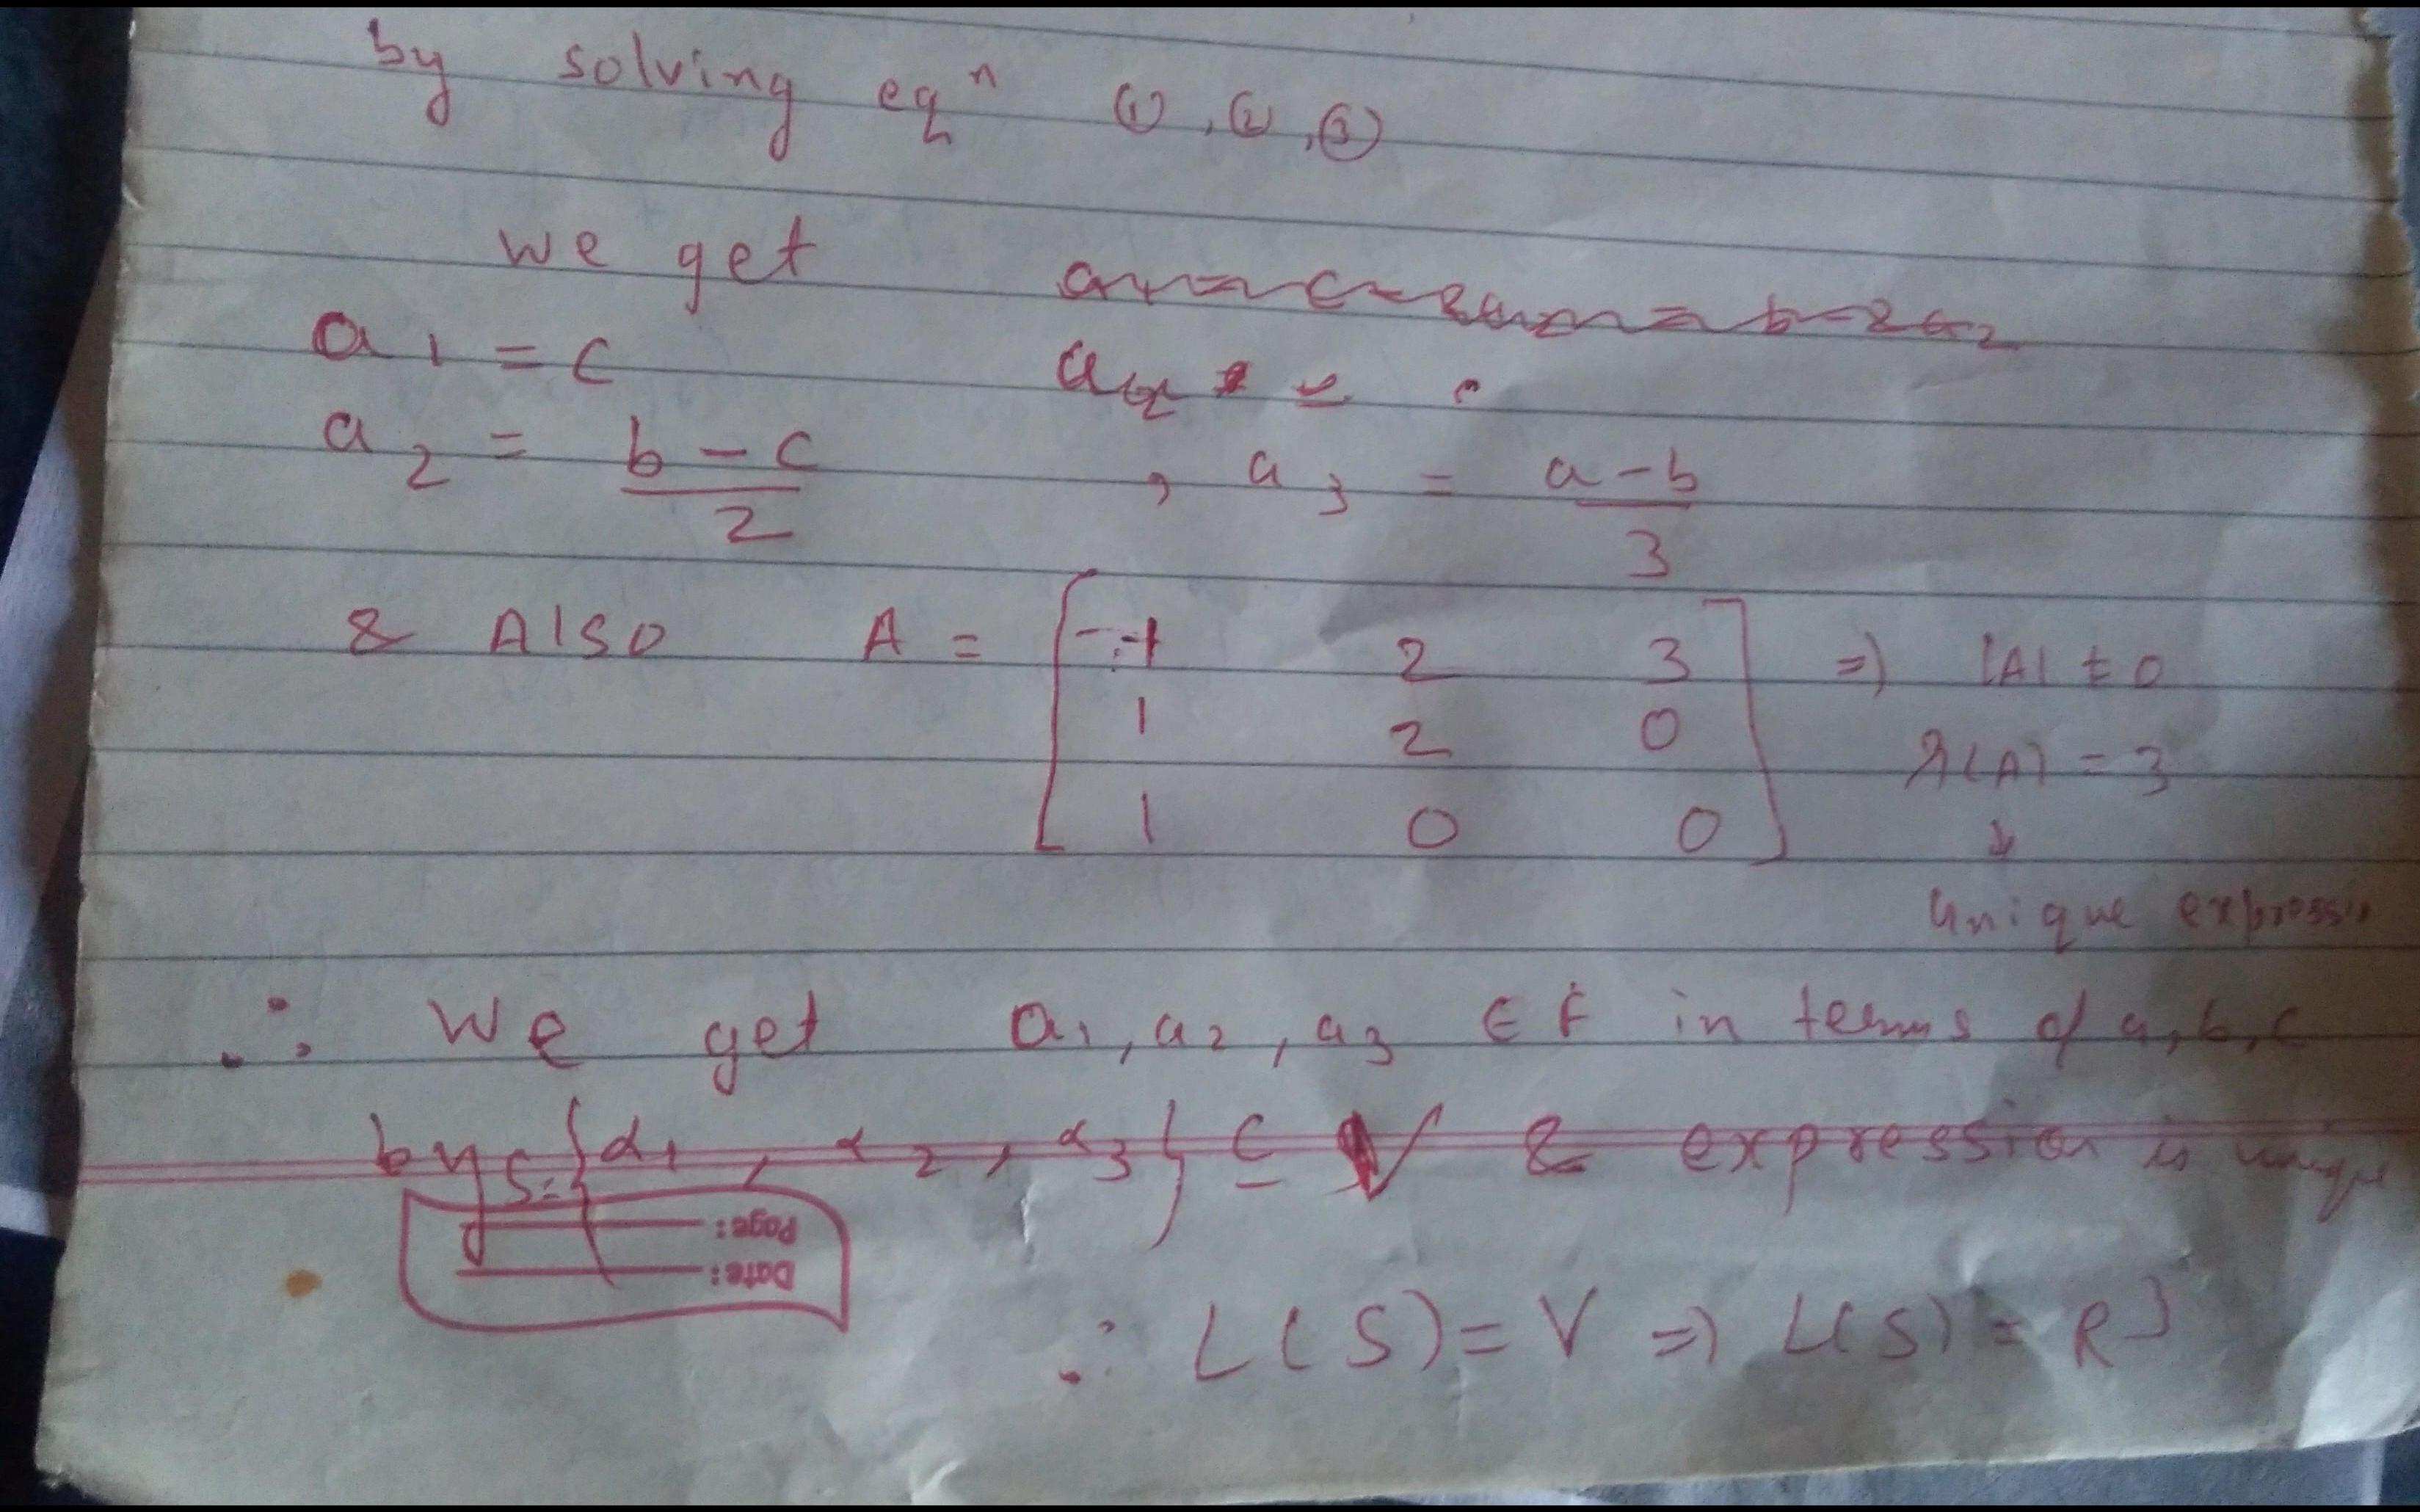 by solving eqⁿ ①, ②, ③
we get
a₁ = c
a₂ = (b - c)/2 , a₃ = (a - b)/3
& Also A = [1 2 3 => |A| ≠ 0
1 2 0 r(A) = 3
1 0 0] ↓
unique
∴ We get a₁, a₂, a₃ ∈ F in terms of a, b, c
by S = {α₁, α₂, α₃} ⊆ V & expression is
Page:
Date:
∴ L(S) = V => L(S) = R³